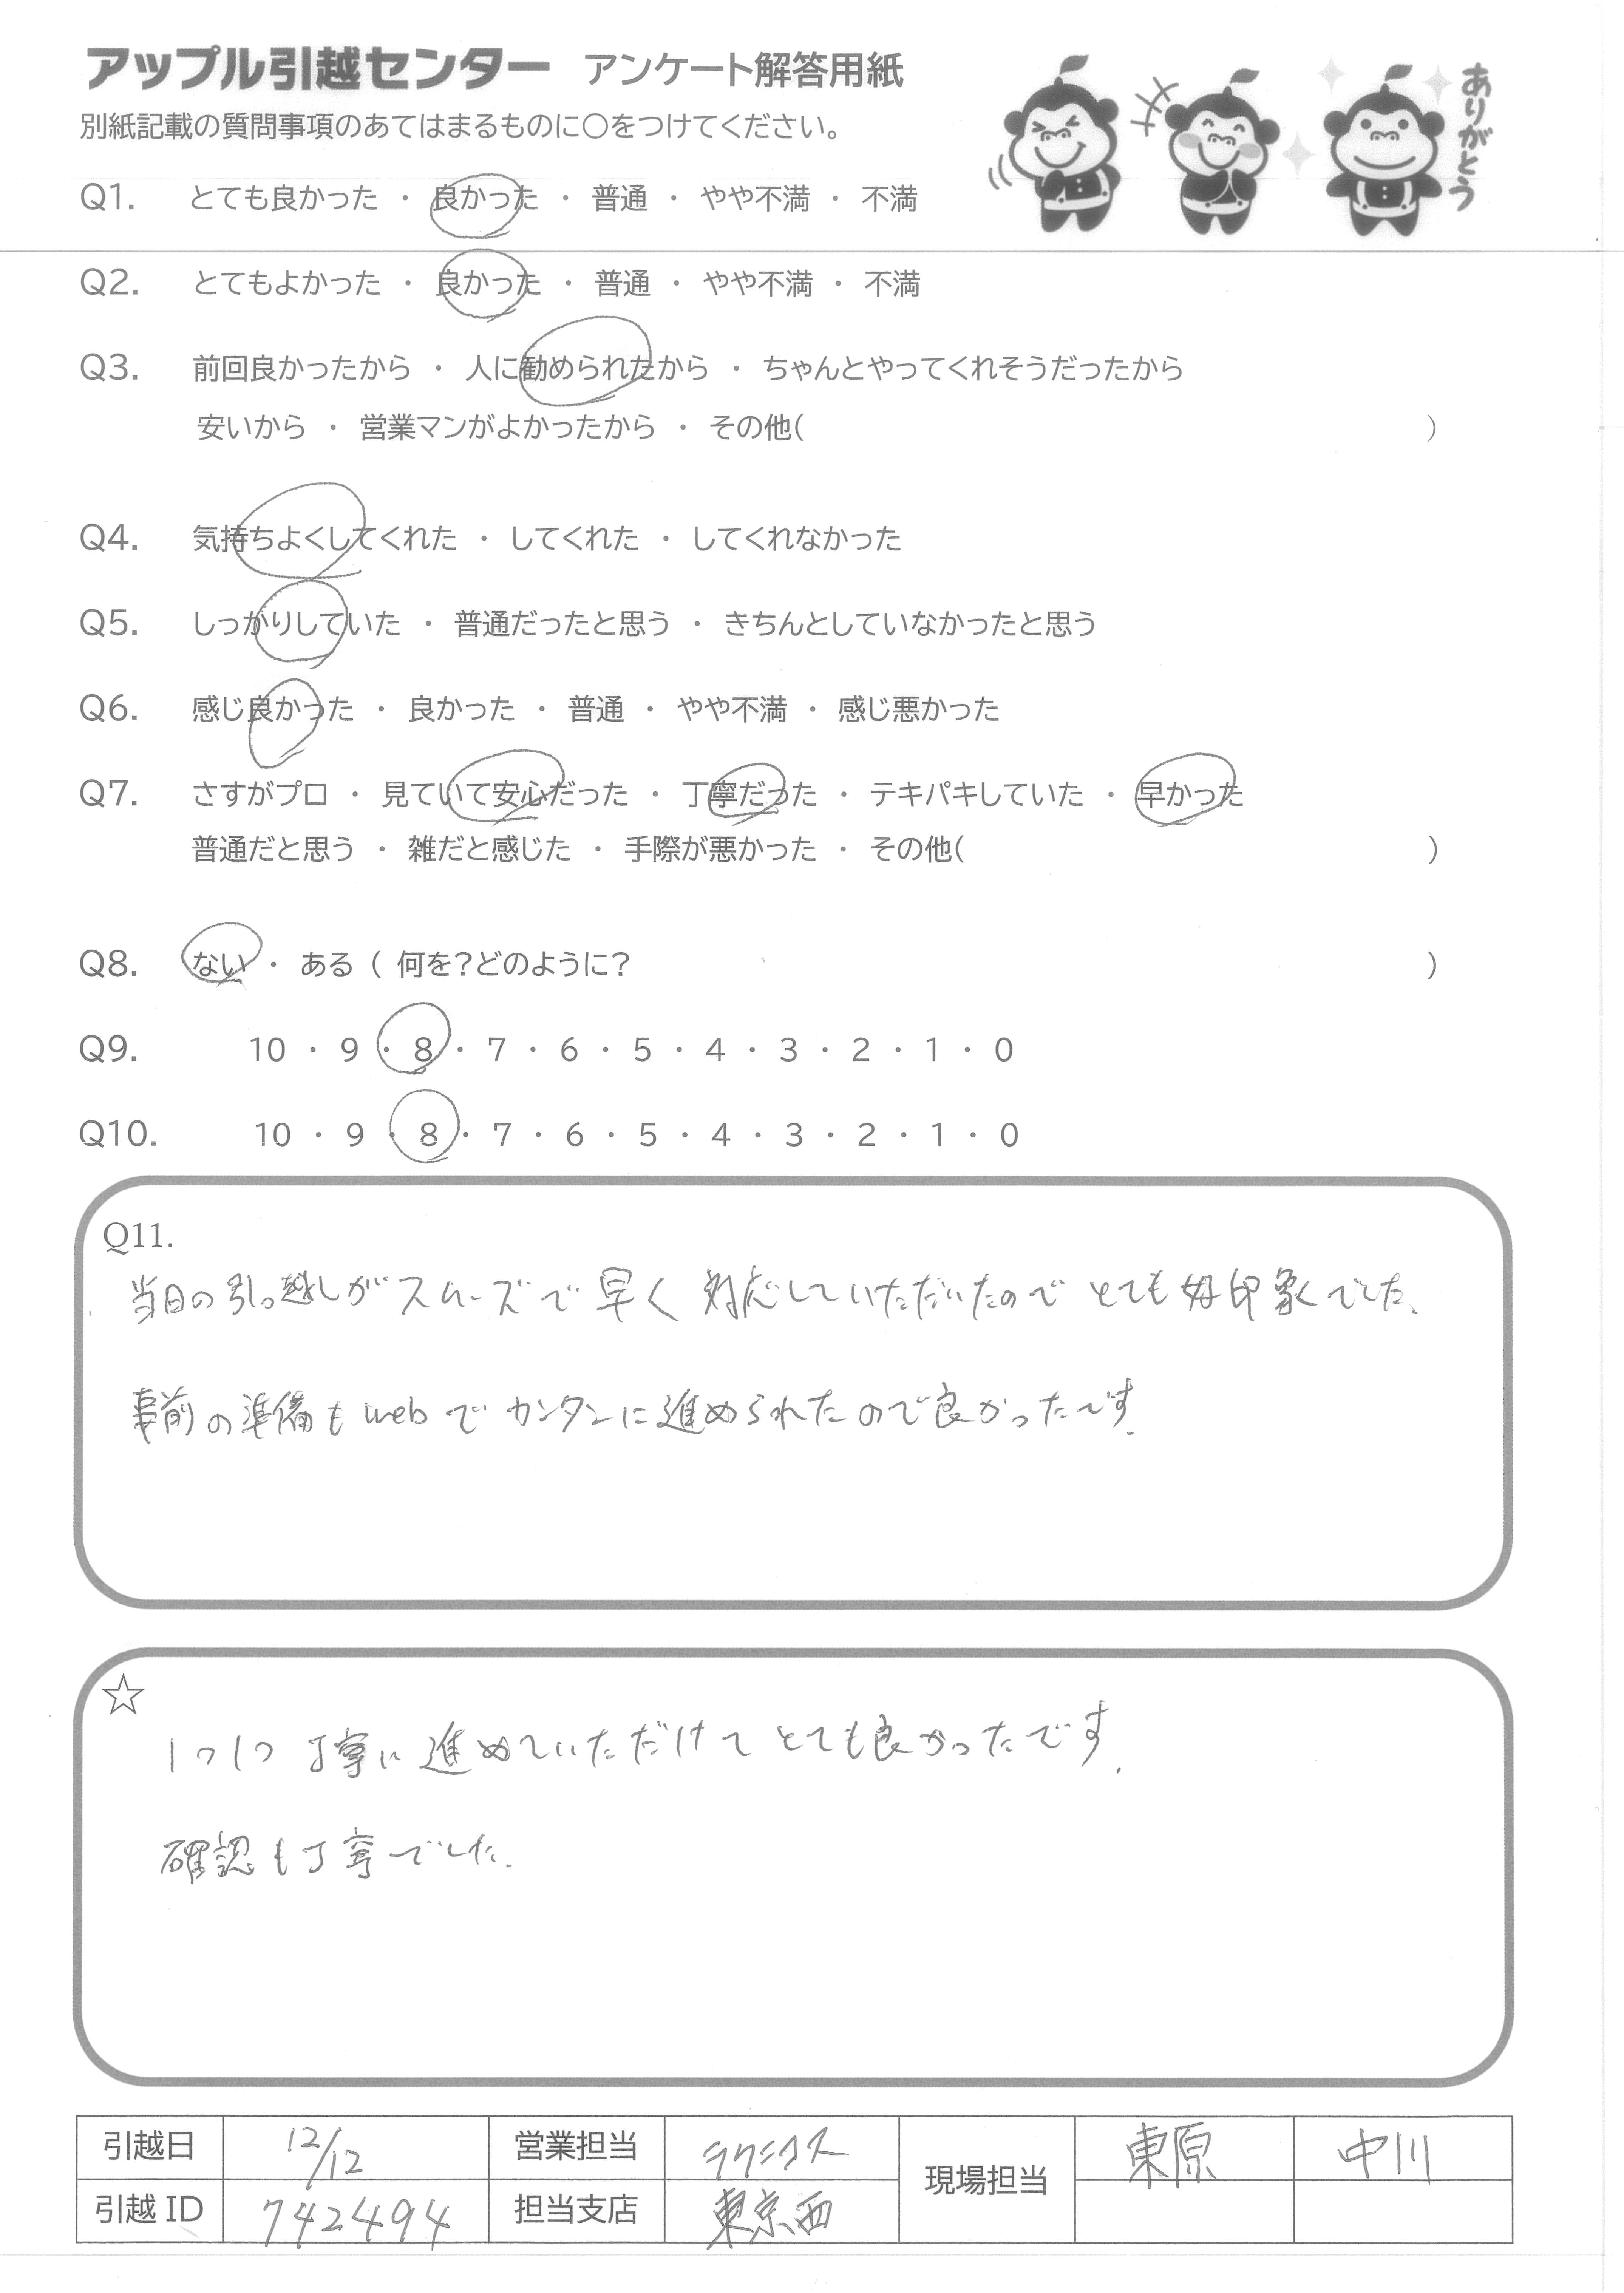 アップル引越センター アンケート解答用紙
ありがとう
別紙記載の質問事項のあてはまるものに〇をつけてください。
Q1. とても良かった ・ 良かった ・ 普通 ・ やや不満 ・ 不満
Q2. とてもよかった ・ 良かった ・ 普通 ・ やや不満 ・ 不満
Q3. 前回良かったから ・ 人に勧められたから ・ ちゃんとやってくれそうだったから
安いから ・ 営業マンがよかったから ・ その他( )
Q4. 気持ちよくしてくれた ・ してくれた ・ してくれなかった
Q5. しっかりしていた ・ 普通だったと思う ・ きちんとしていなかったと思う
Q6. 感じ良かった ・ 良かった ・ 普通 ・ やや不満 ・ 感じ悪かった
Q7. さすがプロ ・ 見ていて安心だった ・ 丁寧だった ・ テキパキしていた ・ 早かった
普通だと思う ・ 雑だと感じた ・ 手際が悪かった ・ その他( )
Q8. ない ・ ある ( 何を?どのように? )
Q9. 10 ・ 9 ・ 8 ・ 7 ・ 6 ・ 5 ・ 4 ・ 3 ・ 2 ・ 1 ・ 0
Q10. 10 ・ 9 ・ 8 ・ 7 ・ 6 ・ 5 ・ 4 ・ 3 ・ 2 ・ 1 ・ 0
Q11.
当日の引っ越しがスムーズで早く対応していただいたのでとても好印象でした。
事前の準備もwebでカンタンに進められたので良かったです。
☆
1つ1つ丁寧に進めていただけてとても良かったです。
確認も丁寧でした。
引越日 12/12 営業担当 ラクニコス 現場担当 東原 中川
引越ID 742494 担当支店 東京西